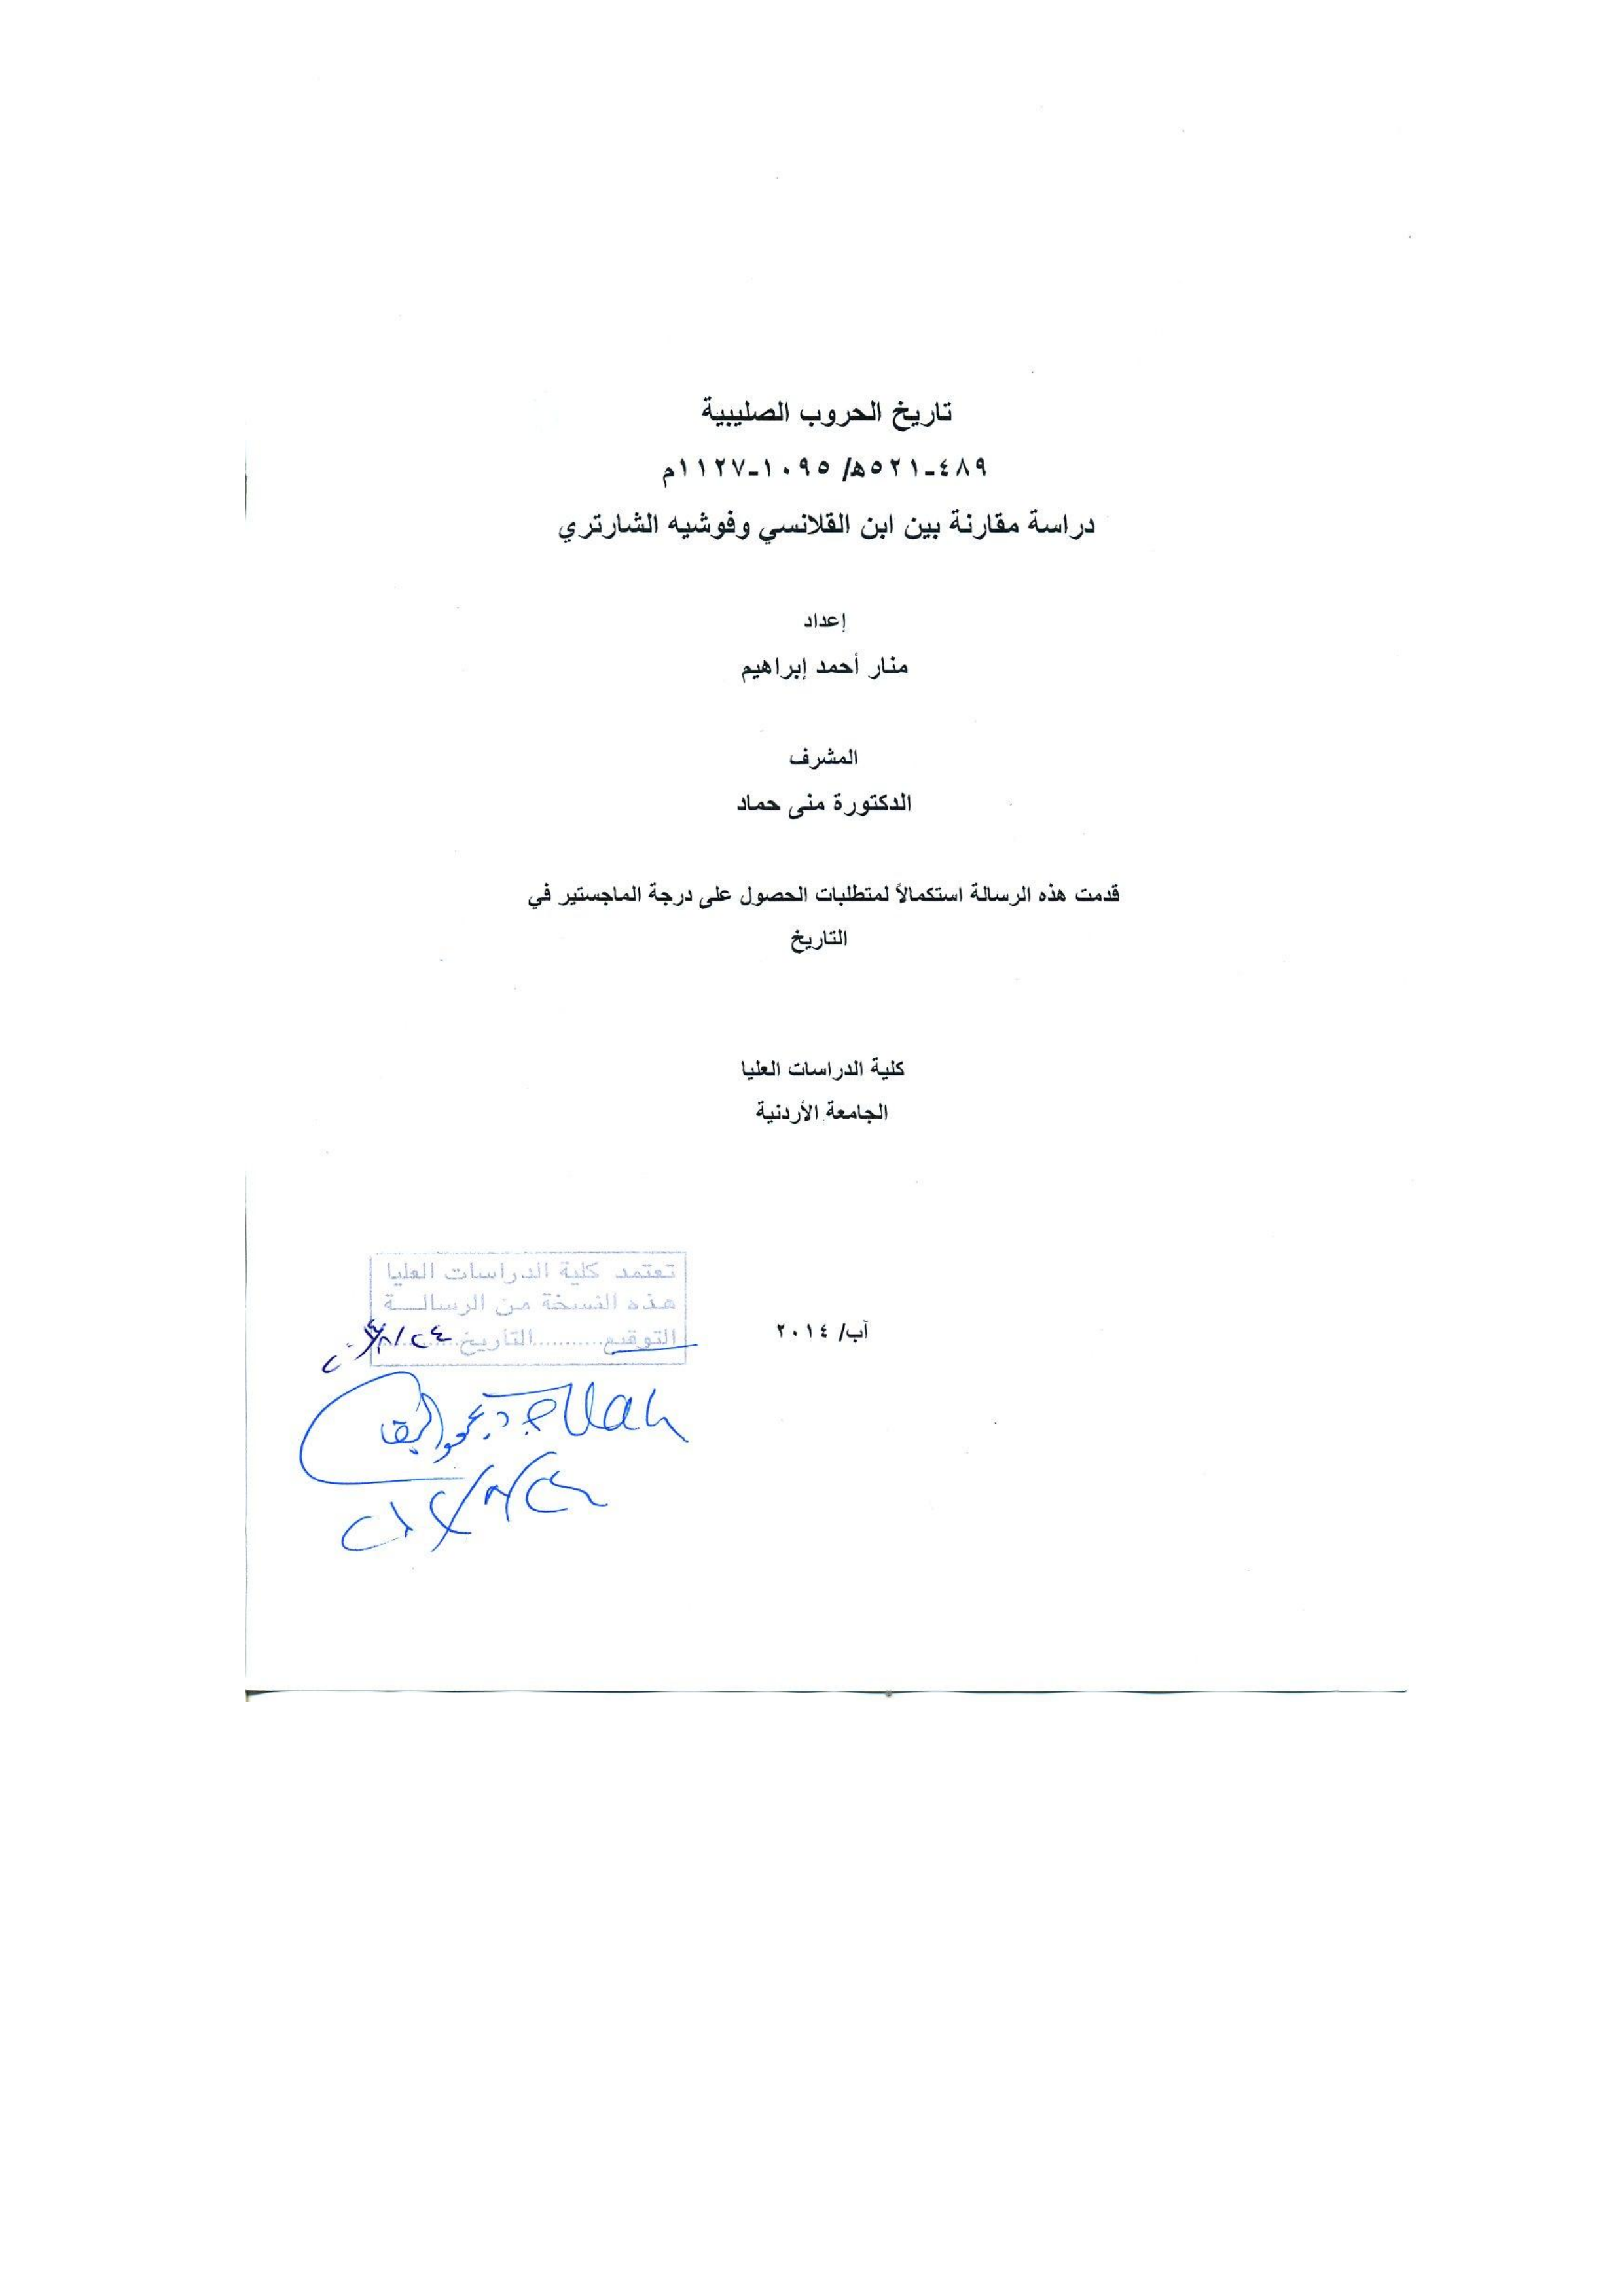 تاريخ الحروب الصليبية
٤٨٩-٥٢١ه/ ١٠٩٥-١١٢٧م
دراسة مقارنة بين ابن القلانسي وفوشيه الشارتري
إعداد
منار أحمد إبراهيم
المشرف
الدكتورة منى حماد
قدمت هذه الرسالة استكمالاً لمتطلبات الحصول على درجة الماجستير في
التاريخ
كلية الدراسات العليا
الجامعة الأردنية
تعتمد كلية الدراسات العليا
هذه النسخة من الرسالـــة
التوقيع..........التاريخ..........
آب/ ٢٠١٤